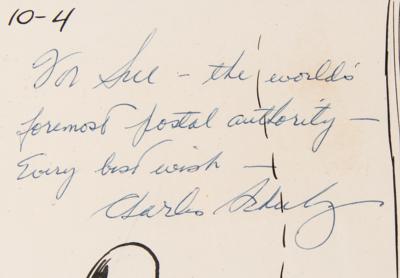 10-4
For Sue – the world's
foremost postal authority –
Every best wish –
Charles Schulz